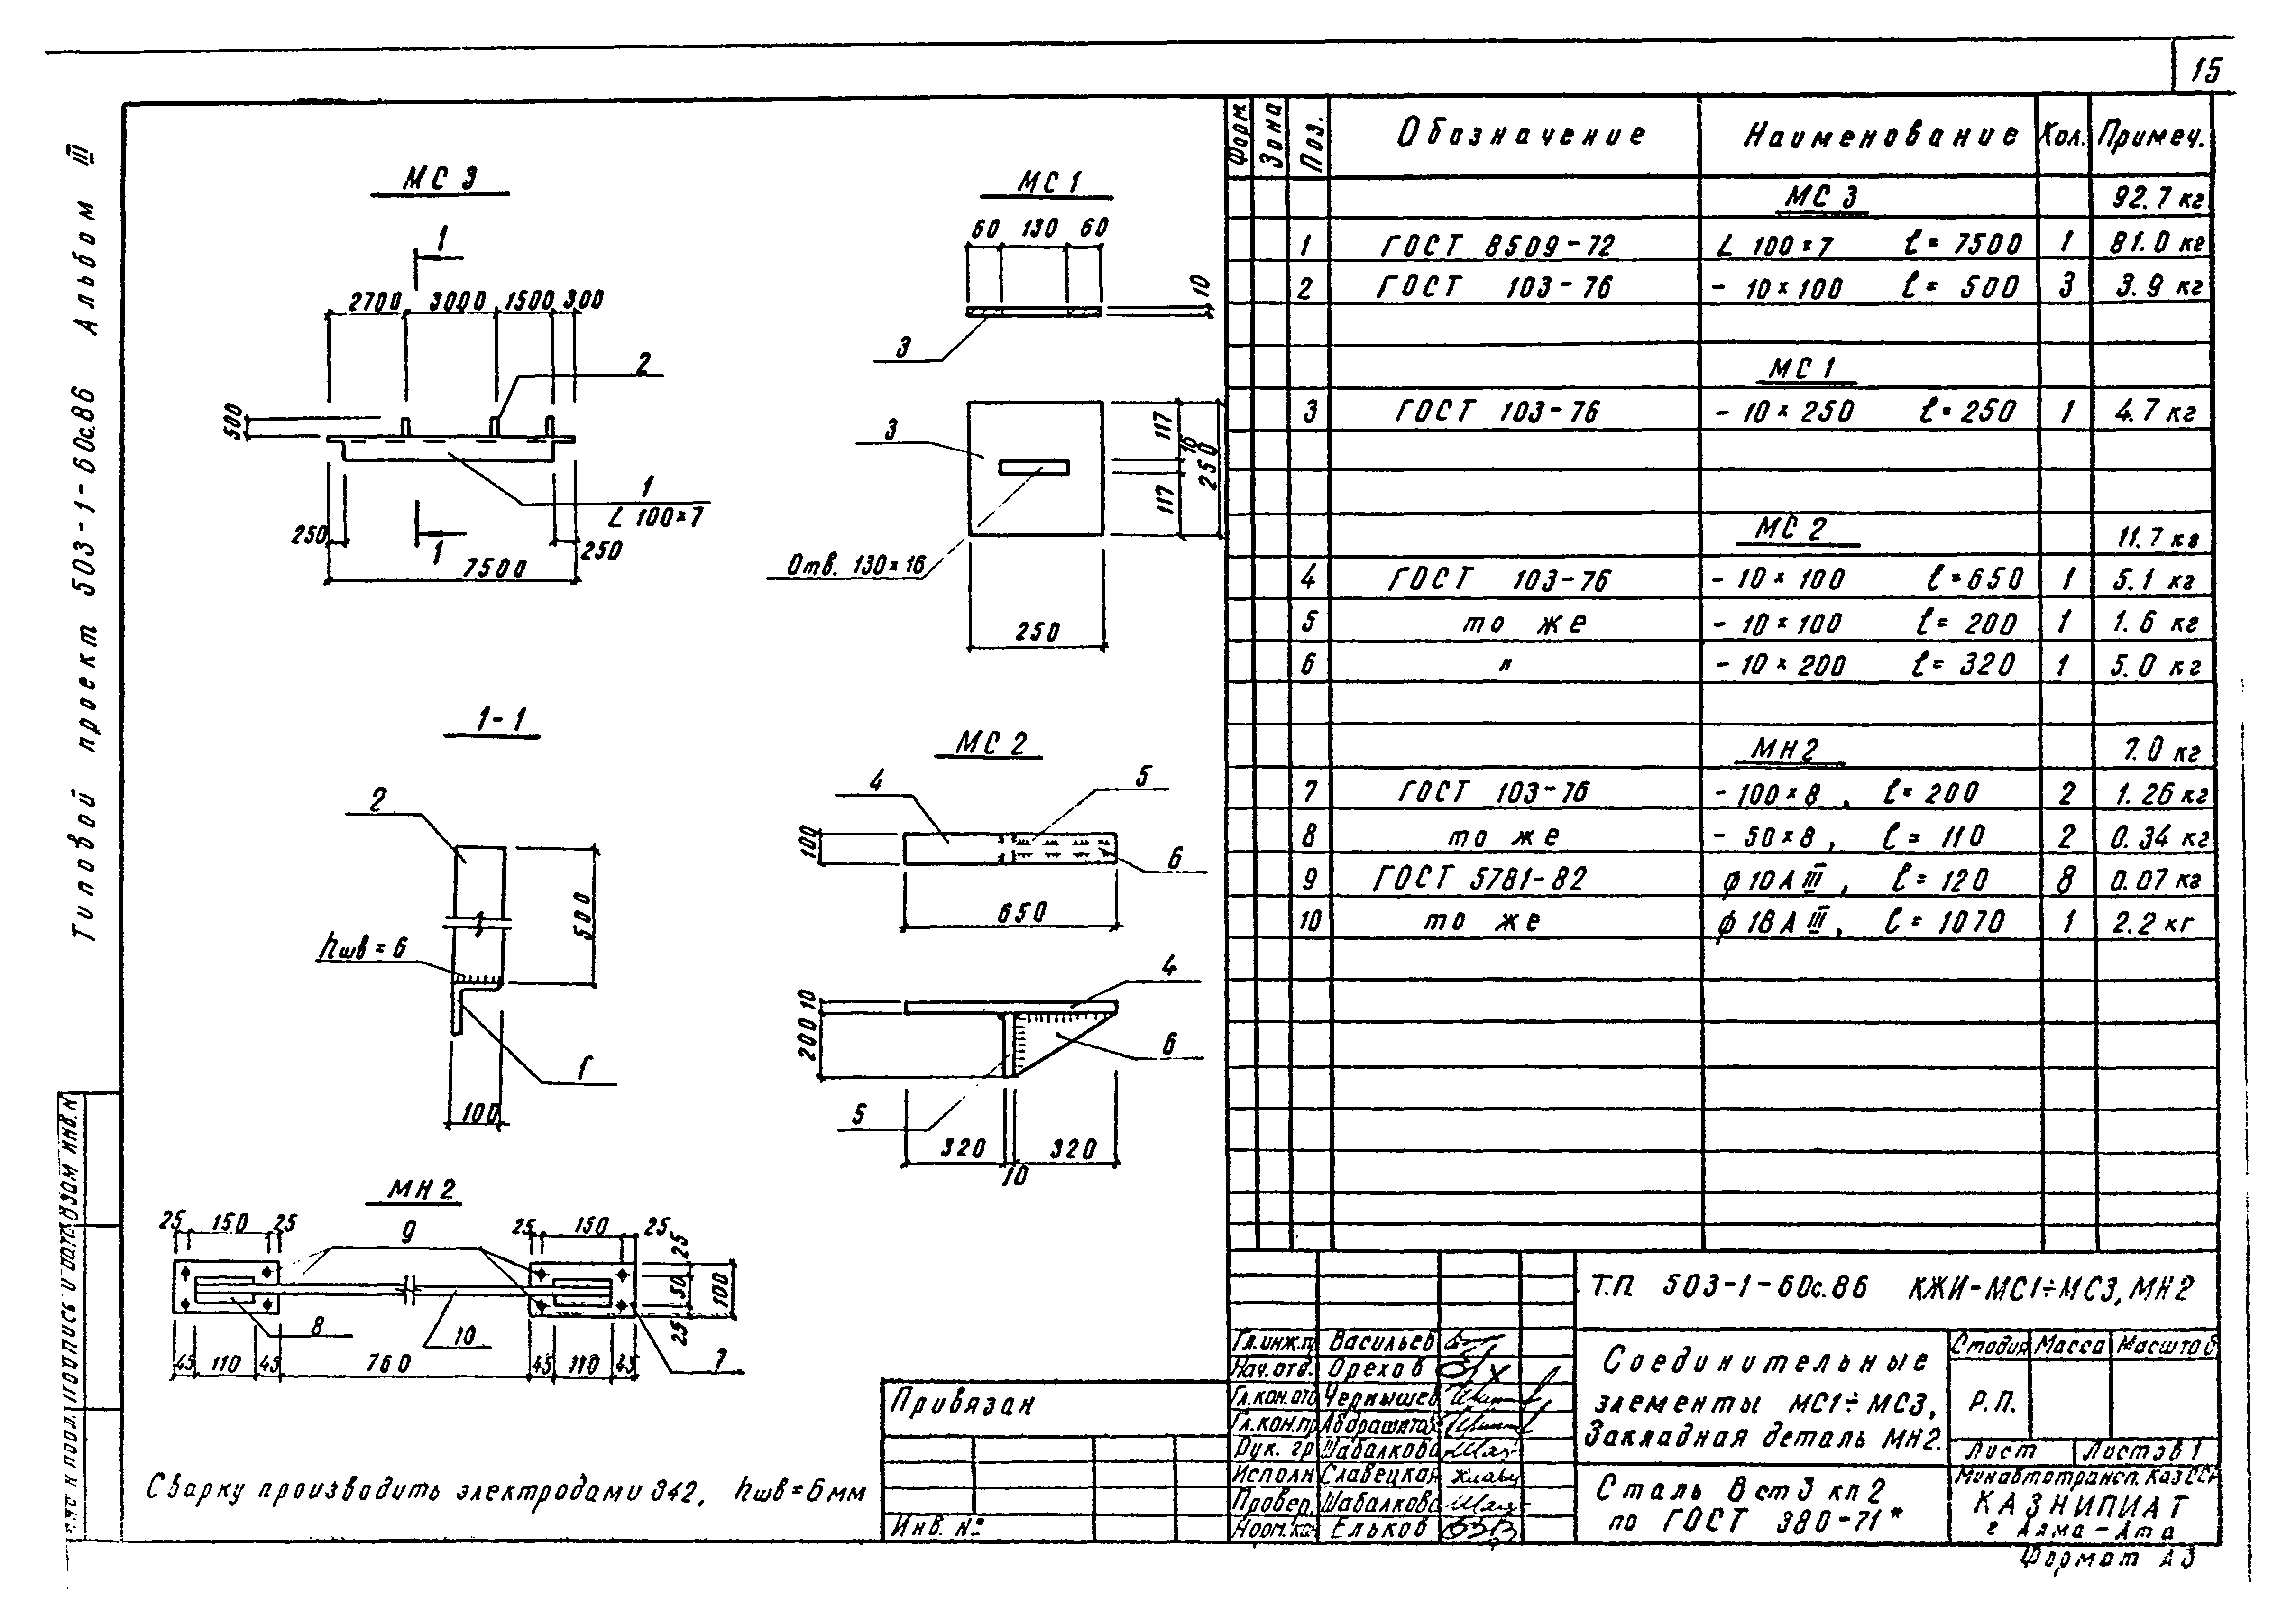 15
Типовой проект 503-1-60с.86 Альбом III
МС 3
1
2700 3000 1500 300
2
500
1
L 100×7
250
1
250
7500
МС 1
60 130 60
10
3
3
117
16
117
250
Отв. 130×16
250
1-1
2
500
hшв = 6
1
100
МС 2
4
5
100
6
650
4
10
200
6
5
320
10
320
МН2
9
25 150 25
25 150 25
25
50
25
100
8
10
7
45 110 45 760 45 110 45
Сварку производить электродами Э42, hшв = 6 мм
Форм. Зона Поз. Обозначение Наименование Кол. Примеч.
МС 3 92.7 кг
1 ГОСТ 8509-72 L 100×7 ℓ= 7500 1 81.0 кг
2 ГОСТ 103-76 - 10×100 ℓ= 500 3 3.9 кг
МС 1
3 ГОСТ 103-76 - 10×250 ℓ=250 1 4.7 кг
МС 2 11.7 кг
4 ГОСТ 103-76 - 10×100 ℓ=650 1 5.1 кг
5 то же - 10×100 ℓ= 200 1 1.6 кг
6 " - 10×200 ℓ= 320 1 5.0 кг
МН2 7.0 кг
7 ГОСТ 103-76 - 100×8, ℓ= 200 2 1.26 кг
8 то же - 50×8, ℓ= 110 2 0.34 кг
9 ГОСТ 5781-82 ϕ 10 А III, ℓ= 120 8 0.07 кг
10 то же ϕ 18 А III, ℓ= 1070 1 2.2 кг
Т.П. 503-1-60с.86 КЖИ-МС1÷МС3, МН2
Гл.инж.п. Васильев
Нач.отд. Орехов
Гл.кон.отд Чернышев
Гл.кон.пр
Рук. гр Шабалкова
Исполн Славецкая
Провер. Шабалкова
Ельков
Соединительные
элементы МС1÷МС3,
Закладная деталь МН2.
Стадия Масса Масштаб
Р.П.
Лист Листов 1
Сталь В ст 3 кп 2
по ГОСТ 380-71*
Минавтотрансп. КазССР
КАЗНИПИАТ
г Алма-Ата
Формат А3
Привязан
Инв. №
Подпись и дата
Взам инв. №